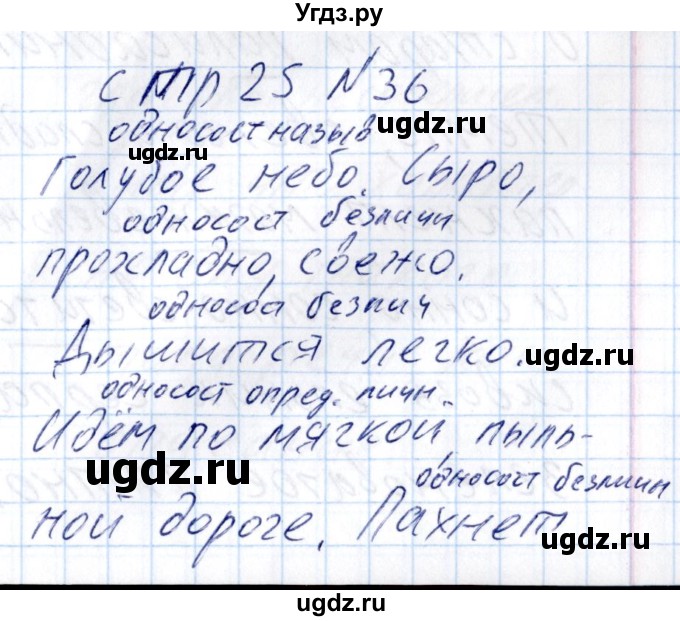 Угдз.ру
стр 25 N 36
односост назыв
ugdz.ru
ugdz.ru
Голубое небо. Сыро,
односост безличн
прохладно, свежо.
односос безлич
Дышится легко.
ugdz.ru
односост опред. личн.
Идём по мягкой, пыль-
ugdz.ru
односост безличн
ной дороге. Пахнет
ugdz.ru
ugdz.ru